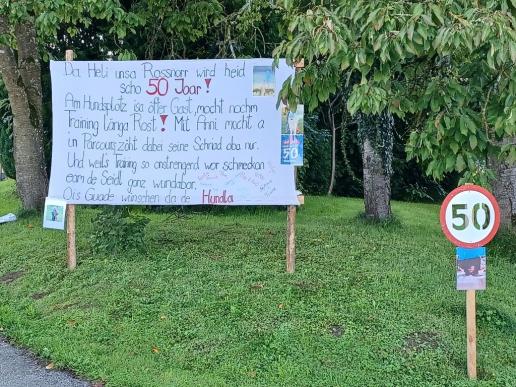 Da Heli unsa Rossnorr wird heid
scho 50 Joar!
Am Hundsplotz isa öfter Gast, mocht nochm
Training länga Rost! Mit Anni mocht a
in Parcour, zöht dabei seine Schriad aba nur.
Und weils Training so onstrengend wor schmeckan
eam de Seidl ganz wundabar.
Ois Guade wünschen da de Hundla
50
50